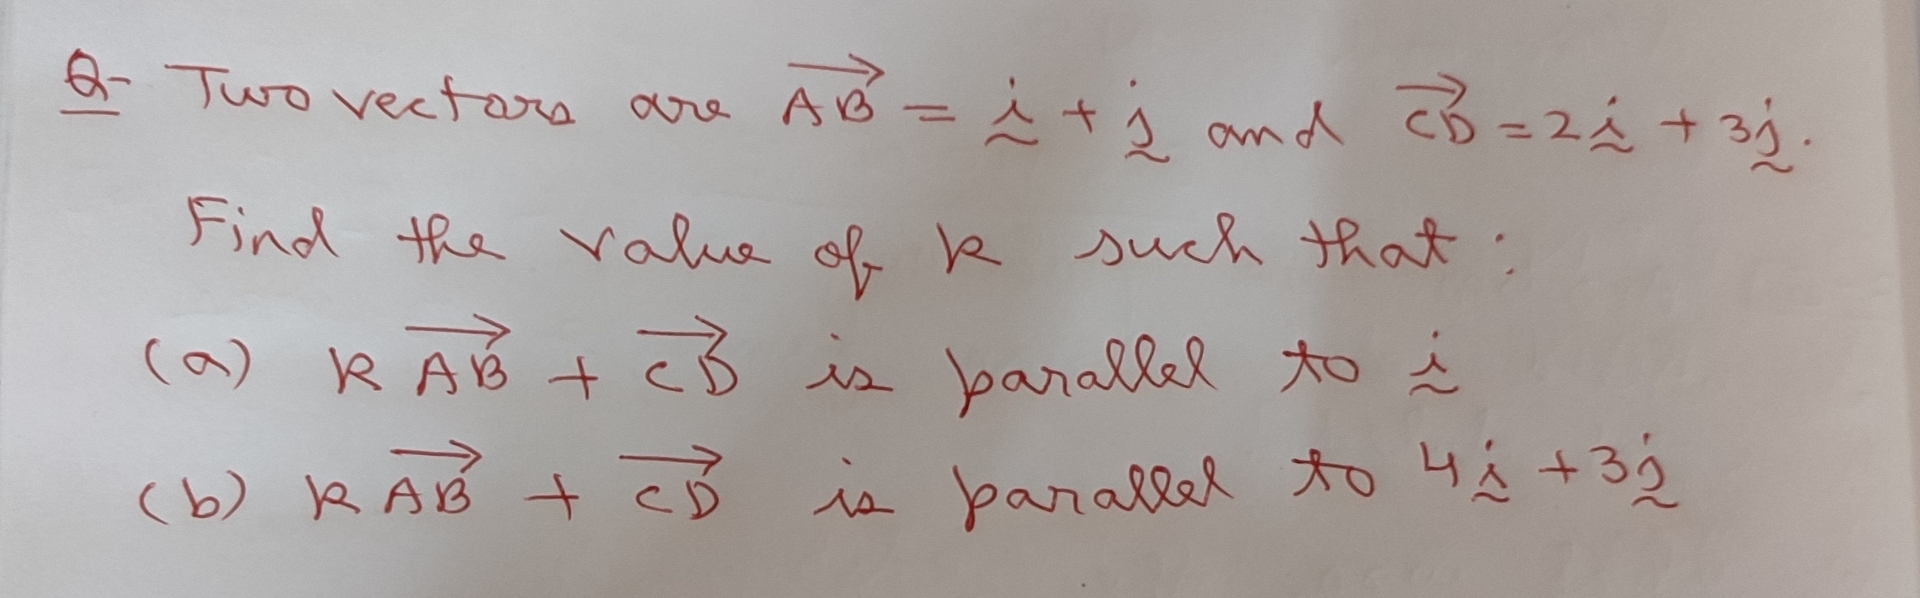 Q- Two vectors are AB⃗ = ḭ + j̰ and CD⃗ = 2ḭ + 3j̰.
Find the value of k such that :
(a) k AB⃗ + CD⃗ is parallel to ḭ
(b) k AB⃗ + CD⃗ is parallel to 4ḭ + 3j̰